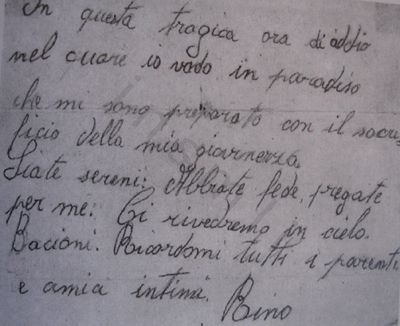 In questa tragica ora di addio
nel cuore io vado in paradiso
che mi sono preparato con il sacri=
ficio della mia giovinezza.
Siate sereni. Abbiate fede, pregate
per me. Ci rivedremo in cielo.
Bacioni. Ricordomi tutti i parenti
e amia intimi. Rino